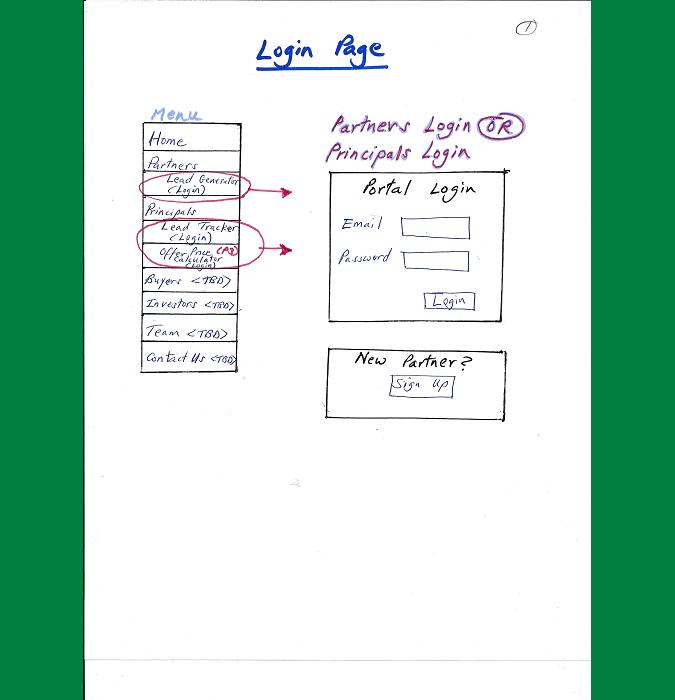 1
Login Page
Menu
Home
Partners
Lead Generator
(Login)
Principals
Lead Tracker
(Login)
Offer Price (P3)
Calculator
(Login)
Buyers <TBD>
Investors <TBD>
Team <TBD>
Contact Us <TBD>
Partners Login OR
Principals Login
Portal Login
Email
Password
Login
New Partner?
Sign Up